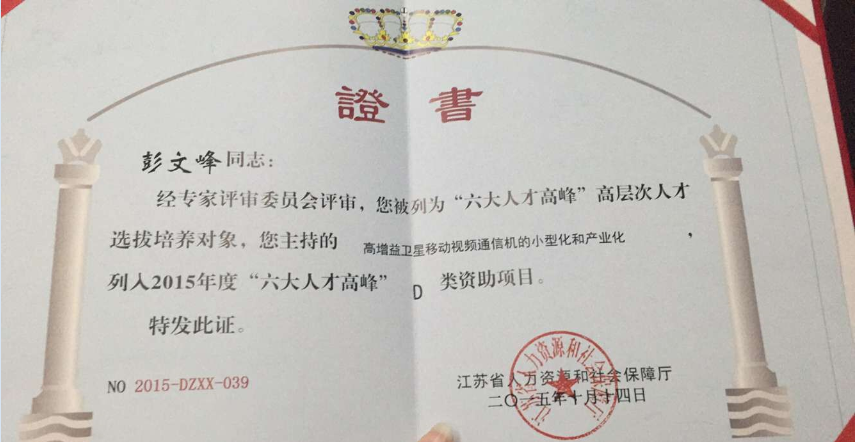 證書
彭文峰同志：
经专家评审委员会评审，您被列为“六大人才高峰”高层次人才
选拔培养对象，您主持的 高增益卫星移动视频通信机的小型化和产业化，
列入2015年度“六大人才高峰” D 类资助项目。
特发此证。
NO 2015-DZXX-039
江苏省人力资源和社会保障厅
二〇一五年十月十四日
江苏省人力资源和社会保障厅